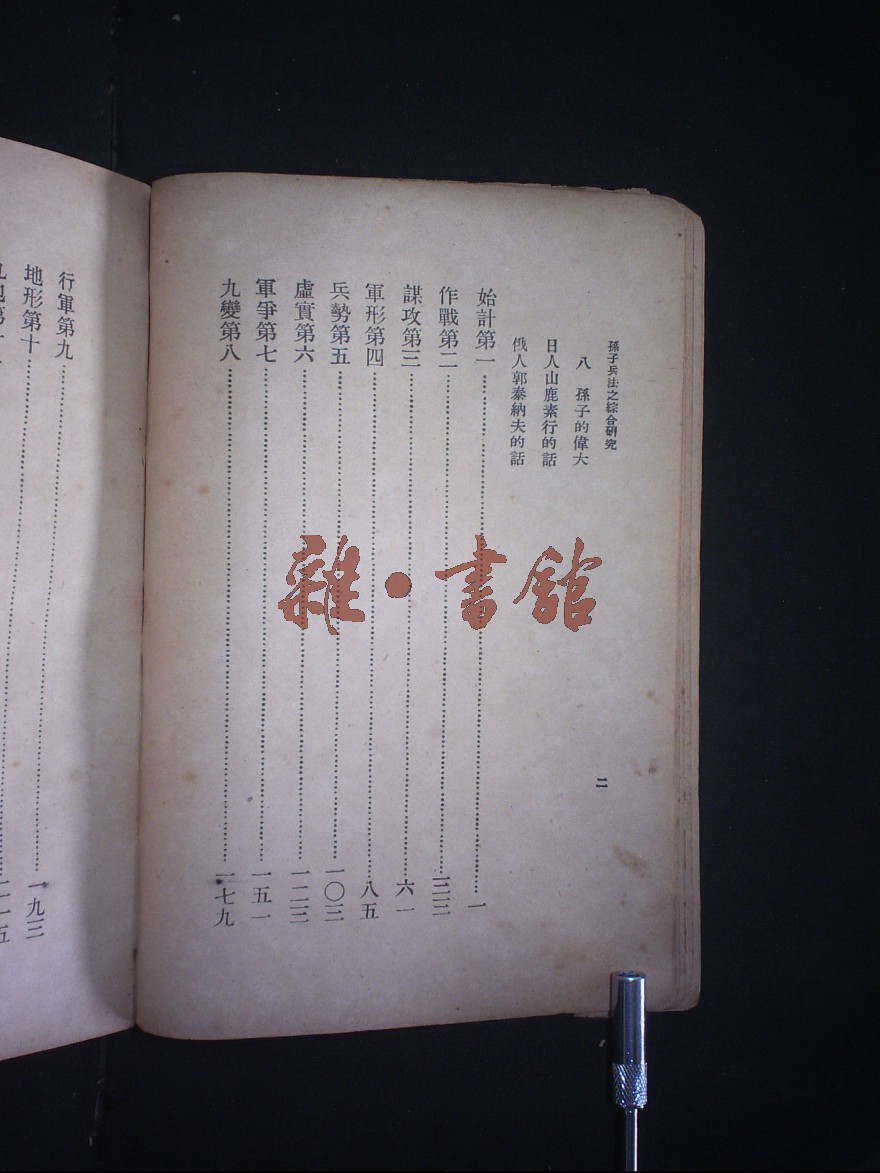 孫子兵法之綜合研究
八　孫子的偉大
日人山鹿素行的話
俄人郭泰納夫的話
始計第一……………………一
作戰第二……………………三三
謀攻第三……………………六一
軍形第四……………………八五
兵勢第五……………………一〇三
虛實第六……………………一二三
軍爭第七……………………一五一
九變第八……………………一七九
二
行軍第九……………………一九三
地形第十……………………二一五
雜·書館